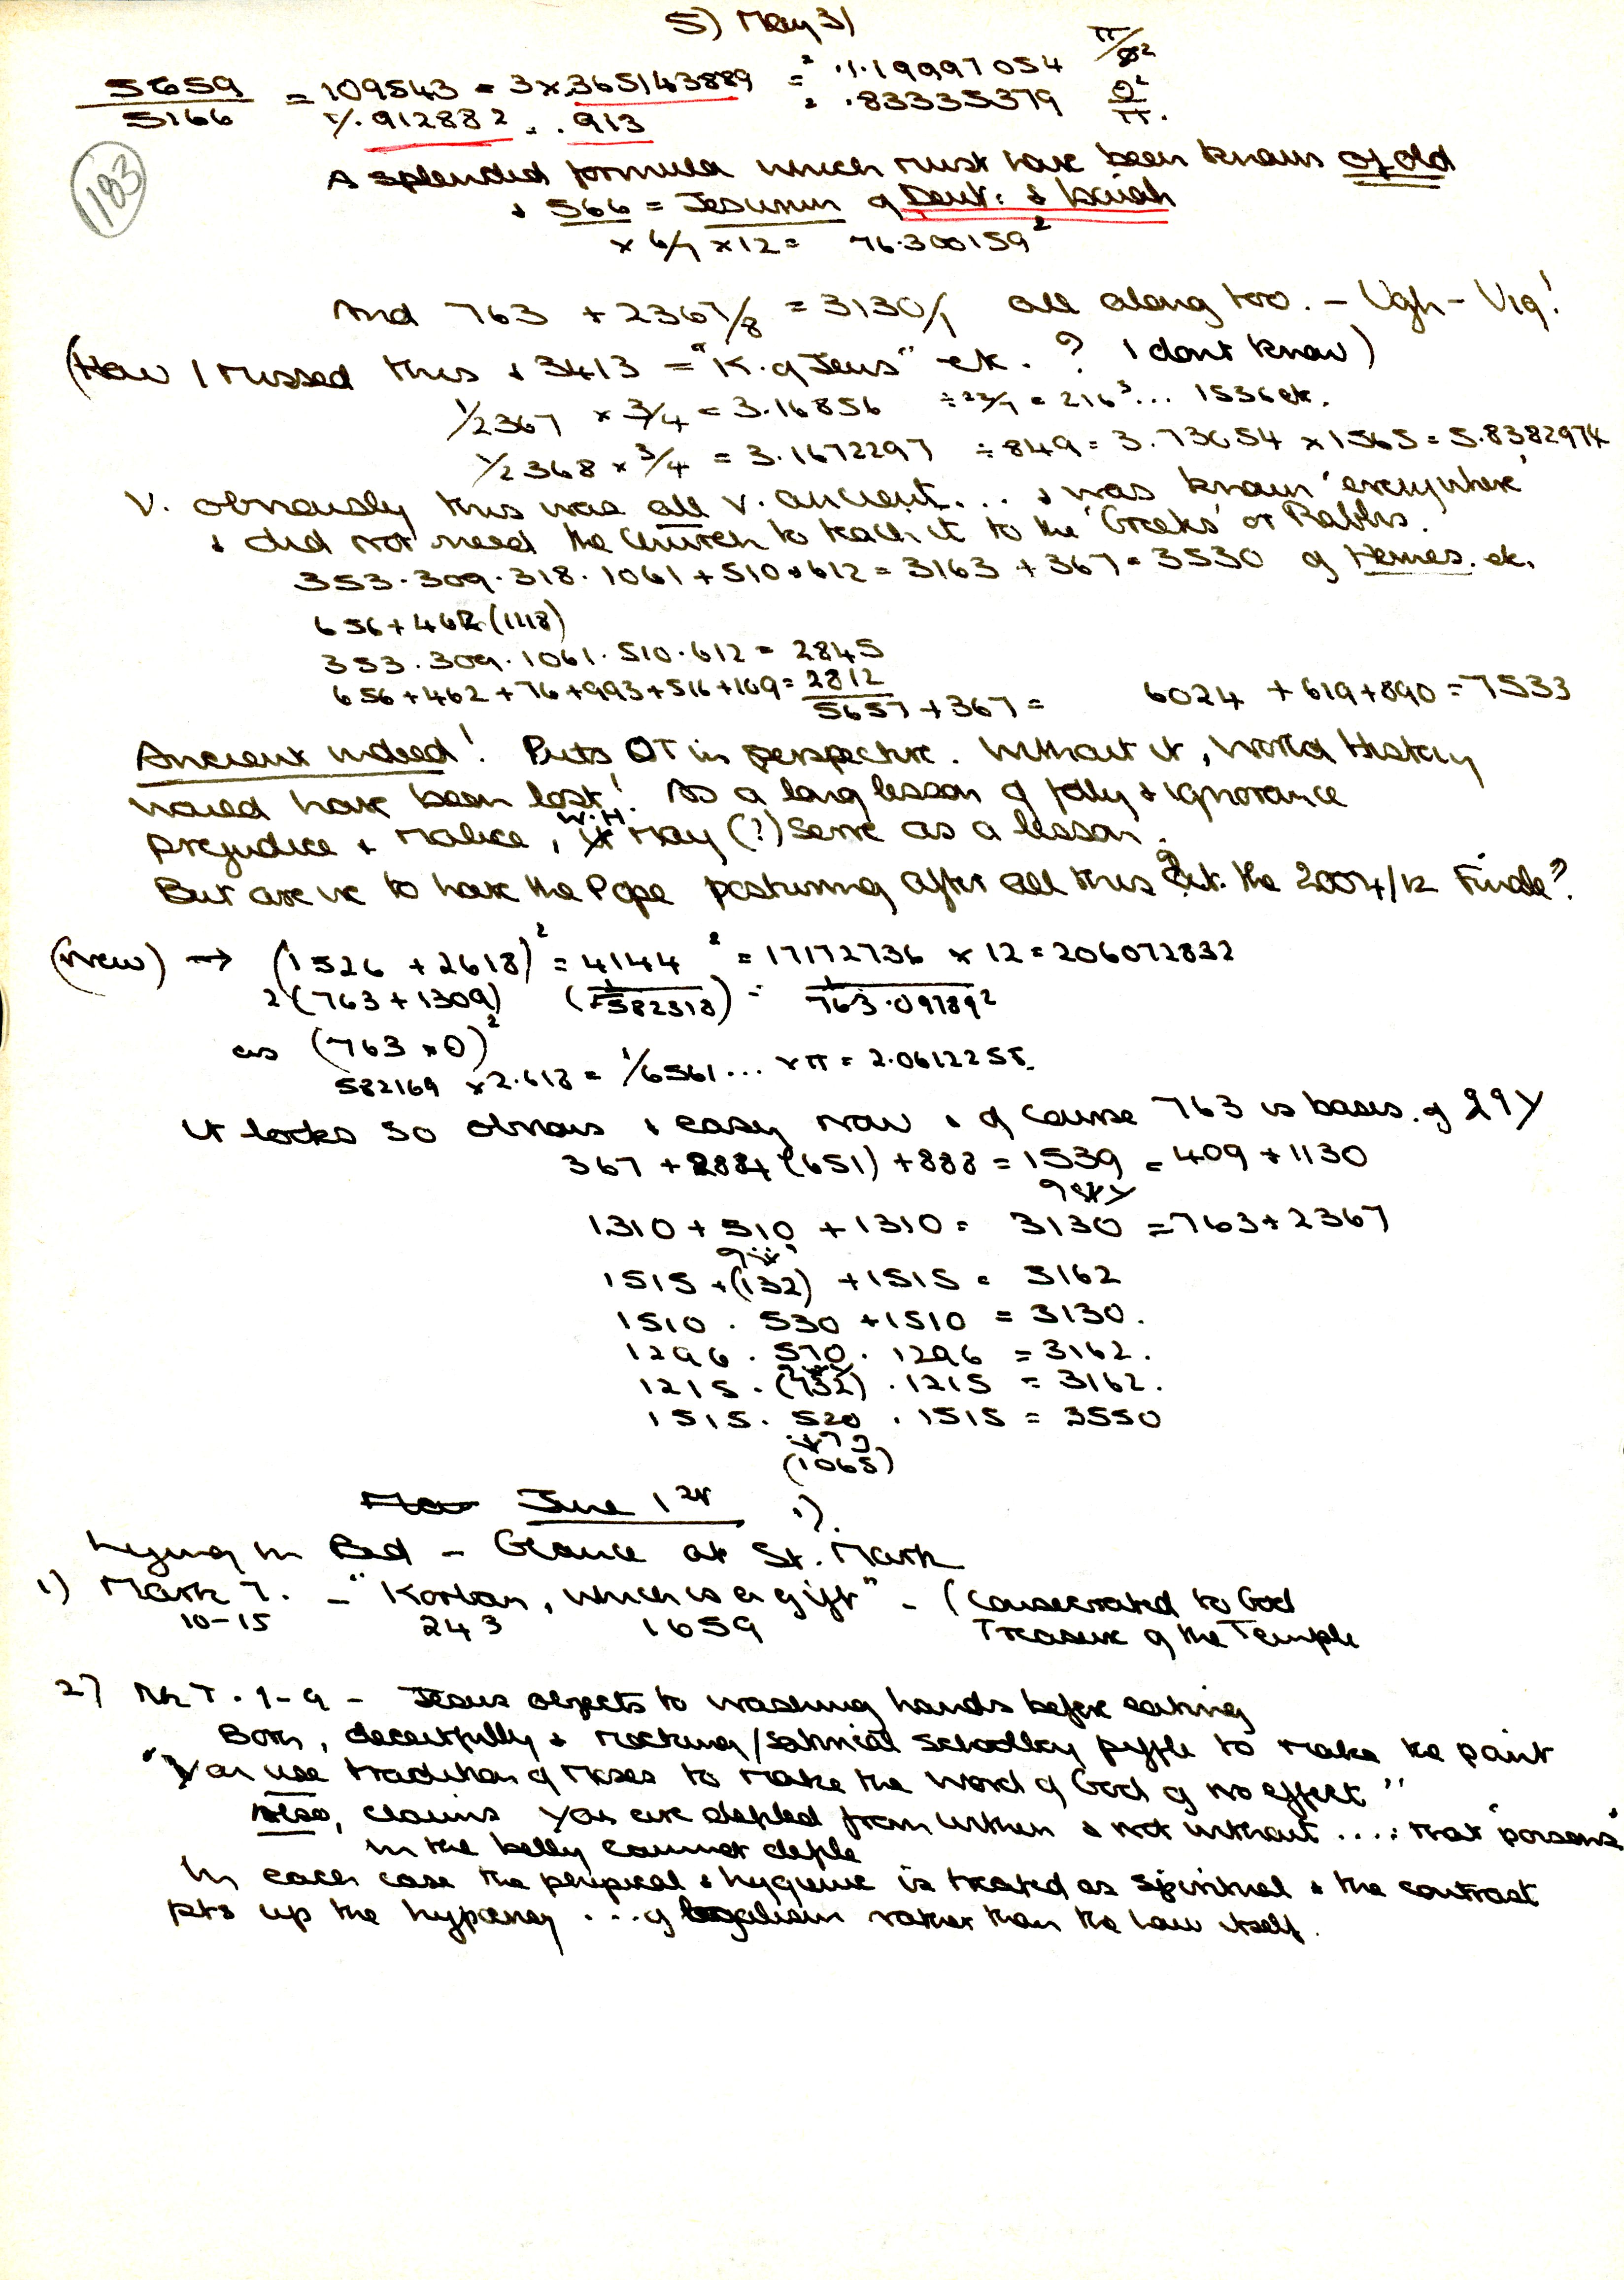 5) May 31
5659 = 109543 = 3 x .365143889 = ² 1.19997054 π/ø²
5166 1/.912882 = .913 ² .83335379 Ø²/π.
1183
A splendid formula which must have been known of old
& 566 = Jesurun of Deut: & Isaiah
x 6/7 x 12 = 76.300159²
And 763 + 2367/8 = 3130/1 all along too. – Ugh – Viq!
(How I missed this & 3413 = "K. of Jews" etc. ? I dont know)
1/2367 x 3/4 = 3.16856 ÷ 23/7 = 216³... 1536 etc.
1/2368 x 3/4 = 3.1672297 ÷ 849 = 3.73054 x 1565 = 5.8382974
V. obviously this was all v. ancient... & was known 'everywhere'
& did not need the Church to teach it to the 'Greeks' or Rabbis.
353.309.318.1061 + 510 + 612 = 3163 + 367 = 3530 of Hermes. etc.
656 + 462 (1118)
353.309.1061.510.612 = 2845
656 + 462 + 76 + 993 + 516 + 109 = 2812
5657 + 367 = 6024 + 619 + 890 = 7533
Ancient indeed! Puts OT in perspective. Without it, World History
would have been lost! As a long lesson of folly & ignorance
prejudice & malice, W.H. may (?) serve as a lesson.
But are we to have the Pope posturing after all this? the 2004/12 Finale?
(New) → (1526 + 2618)² = 4144² = 17172736 x 12 = 206072832
2(763 + 1309) (1/582318) = 1/763.09789²
as (763 x 0)²
582169 x 2.618 = 1/6561... x π = 2.0612255.
It looks so obvious & easy now & of course 763 is basis. of
367 + 284 (651) + 888 = 1539 = 409 + 1130
1310 + 510 + 1310 = 3130 = 763 + 2367
1515 + (132) + 1515 = 3162
1510 . 530 + 1510 = 3130.
1296 . 570 . 1296 = 3162.
1215 . (732) . 1215 = 3162.
1515 . 520 . 1515 = 3550
(1065)
June 1st 1).
Lying in Bed – Glance at St. Mark
1) Mark 7. – "Korban, which is a gift" – (Consecrated to God
10-15 243 1659 Treasure of the Temple
2) Mk 7. 1-9 – Jesus objects to washing hands before eating
Both, deceitfully & mocking/satirical piffle to make the point
"You use tradition of Moses to make the word of God of no effect"
Also, claims you are defiled from within & not without .... that 'poisons'
in the belly cannot defile
In each case the physical & hygiene is treated as spiritual & the contrast
pts up the hypocrisy ... of legalism rather than the law itself.